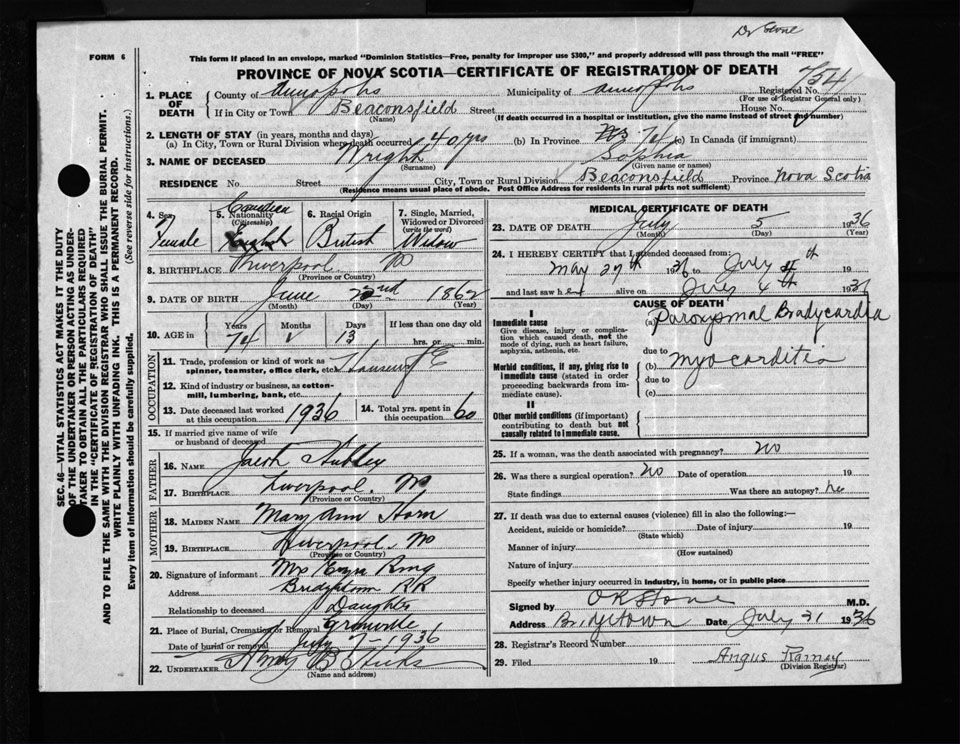 Dr Stone
FORM 6
This form if placed in an envelope, marked "Dominion Statistics—Free, penalty for improper use $300," and properly addressed will pass through the mail "FREE"
PROVINCE OF NOVA SCOTIA—CERTIFICATE OF REGISTRATION OF DEATH
754
1. PLACE OF DEATH County of Annapolis Municipality of Annapolis Registered No.
(For use of Registrar General only)
If in City or Town Beaconsfield Street House No.
(Name) (If death occurred in a hospital or institution, give the name instead of street and number)
2. LENGTH OF STAY (in years, months and days)
(a) In City, Town or Rural Division where death occurred 40 yrs (b) In Province 74 (c) In Canada (if immigrant)
3. NAME OF DECEASED Wright Sophia
(Surname) (Given name or names)
RESIDENCE No. Street City, Town or Rural Division Beaconsfield Province Nova Scotia
(Residence means usual place of abode. Post Office Address for residents in rural parts not sufficient)
SEC. 46—VITAL STATISTICS ACT MAKES IT THE DUTY
OF THE UNDERTAKER OR PERSON ACTING AS UNDER-
TAKER TO OBTAIN ALL THE PARTICULARS REQUIRED
IN THE "CERTIFICATE OF REGISTRATION OF DEATH"
AND TO FILE THE SAME WITH THE DIVISION REGISTRAR WHO SHALL ISSUE THE BURIAL PERMIT.
WRITE PLAINLY WITH UNFADING INK. THIS IS A PERMANENT RECORD.
Every item of information should be carefully supplied. (See reverse side for instructions.)
4. Sex 5. Nationality (Citizenship) 6. Racial Origin 7. Single, Married, Widowed or Divorced (write the word)
Canadian
Female English British Widow
8. BIRTHPLACE Liverpool NS
(Province or Country)
9. DATE OF BIRTH June 22nd 1862
(Month) (Day) (Year)
10. AGE in Years Months Days If less than one day old
74 13 hrs. or min.
OCCUPATION
11. Trade, profession or kind of work as
spinner, teamster, office clerk, etc.
12. Kind of industry or business, as cotton-
mill, lumbering, bank, etc.
13. Date deceased last worked
at this occupation 1936
14. Total yrs. spent in
this occupation 60
15. If married give name of wife
or husband of deceased
FATHER
16. NAME Jacob
17. BIRTHPLACE Liverpool. NS
(Province or Country)
MOTHER
18. MAIDEN NAME Mary Ann
19. BIRTHPLACE Liverpool NS
(Province or Country)
20. Signature of informant Mrs Ring
Address Bridgetown RR
Relationship to deceased Daughter
21. Place of Burial, Cremation or Removal Granville
Date of burial or removal July 7 - 1936
22. UNDERTAKER B Hicks
(Name and address)
MEDICAL CERTIFICATE OF DEATH
23. DATE OF DEATH July 5 1936
(Month) (Day) (Year)
24. I HEREBY CERTIFY that I attended deceased from:
May 27th 1936 to July 19
and last saw her alive on July 4th 1936
CAUSE OF DEATH
I
Immediate cause
Give disease, injury or compli-
cation which caused death, not the
mode of dying, such as heart failure,
asphyxia, asthenia, etc.
(a) Paroxysmal Bradycardia
due to
Morbid conditions, if any, giving rise to
immediate cause (stated in order
proceeding backwards from im-
mediate cause).
(b) myocarditis
due to
(c)
II
Other morbid conditions (if important)
contributing to death but not
causally related to immediate cause.
25. If a woman, was the death associated with pregnancy? NO
26. Was there a surgical operation? NO Date of operation 19
State findings Was there an autopsy? No
27. If death was due to external causes (violence) fill in also the following:—
Accident, suicide or homicide? Date of injury 19
(State which)
Manner of injury
(How sustained)
Nature of injury
Specify whether injury occurred in industry, in home, or in public place
Signed by Stone M.D.
Address Bridgetown Date July 21 1936
28. Registrar's Record Number
29. Filed 19 Angus Ramey
(Division Registrar)